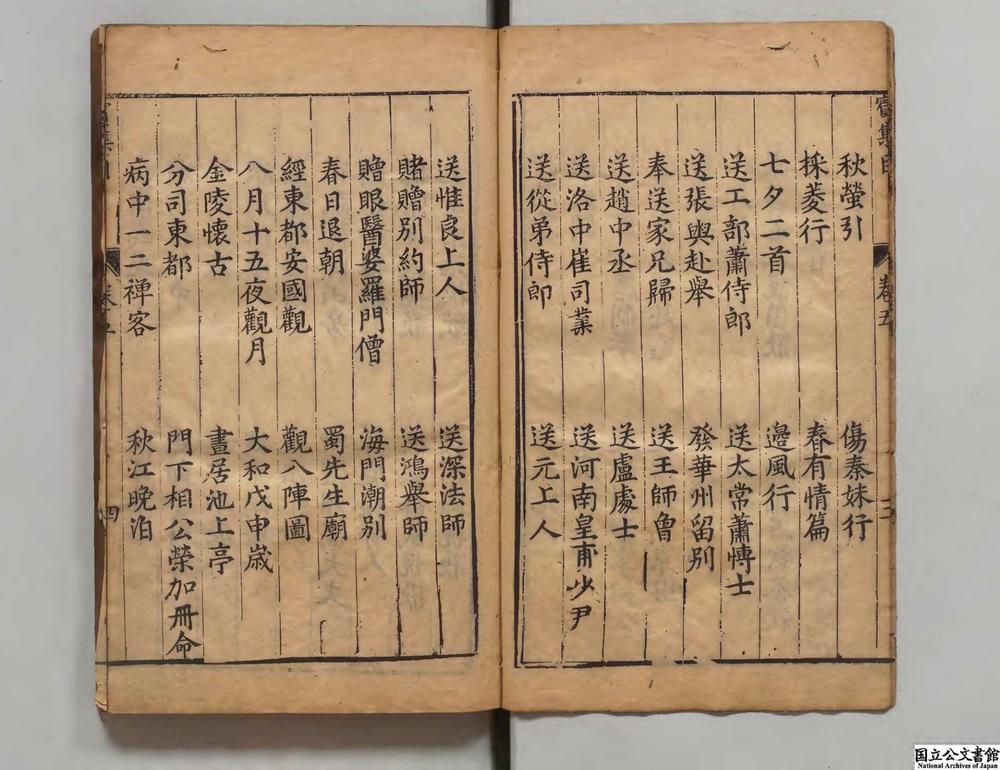 秋螢引　傷秦妹行
採菱行　春有情篇
七夕二首　邊風行
送工部蕭侍郎　送太常蕭博士
送張與赴舉　發華州留別
奉送家兄歸　送王師魯
送趙中丞　送盧處士
送洛中崔司業　送河南皇甫少尹
送從弟侍郎　送元上人
送惟良上人　送深法師
賭贈別約師　送鴻舉師
贈眼醫婆羅門僧　海門潮別
春日退朝　蜀先生廟
經東都安國觀　觀八陣圖
八月十五夜觀月　大和戊申歲
金陵懷古　晝居池上亭
分司東都　門下相公榮加冊命
病中一二禅客　秋江晚泊
卷五
四
国立公文書館
National Archives of Japan